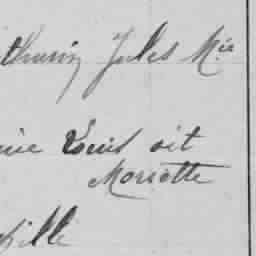 thurin Jules Mie
nie Louis dit
Moriotte
ville